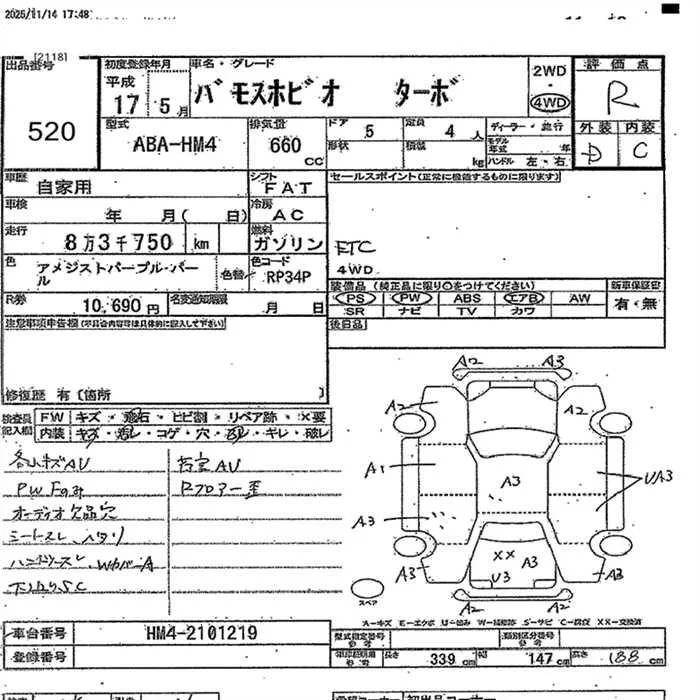 2025/11/14 17:48
[2118]
出品番号
520
初度登録年月
平成
17 5 月
車名・グレード
バモスホビオ ターボ
2WD
・
4WD
評価点
R
外装 内装
D C
型式
ABA-HM4
排気量
660 cc
ドア 5
定員 4 人
形状
積載 kg
ディーラー・並行
モデル年式 年
ハンドル 左・右
車歴
自家用
シフト
FAT
車検
年 月( 日)
冷房
AC
走行
8万3千750 km
燃料
ガソリン
色
アメジストパープル・パール
色替
色コード
RP34P
R券
10,690円
名変通知期限
月 日
セールスポイント(正常に機能するものに限ります)
ETC
4WD
装備品 (純正品に限り○をつけてください)
PS PW ABS エアB AW
SR ナビ TV カワ
新車保証書
有・無
後日品
注意事項申告欄(不具合内容等は具体的に記入して下さい)
修復歴 有〔箇所 〕
検査員記入欄
FW キズ・飛石・ヒビ割・リペア跡・×要
内装 キズ・汚レ・コゲ・穴・凹レ・キレ・破レ
各小キズAU
PW Fのみ
オーディオ欠品穴
シートスレ、ヘタリ
ハンドルスレ、WカバーA
下回りSC
荷室AU
Rフロアー歪
A2 A3
A2 A2
A1 A3 UA3
A3
×× A3
U3
A3 A3
A2 A2
スペア
A-キズ E-エクボ U-凹み W-補修跡 S-サビ C-腐食 XX-交換済
車台番号 HM4-2101219
登録番号
型式指定番号
参考
類別区分番号
参考
長さ 339 cm 幅 147 cm 高さ 188 cm